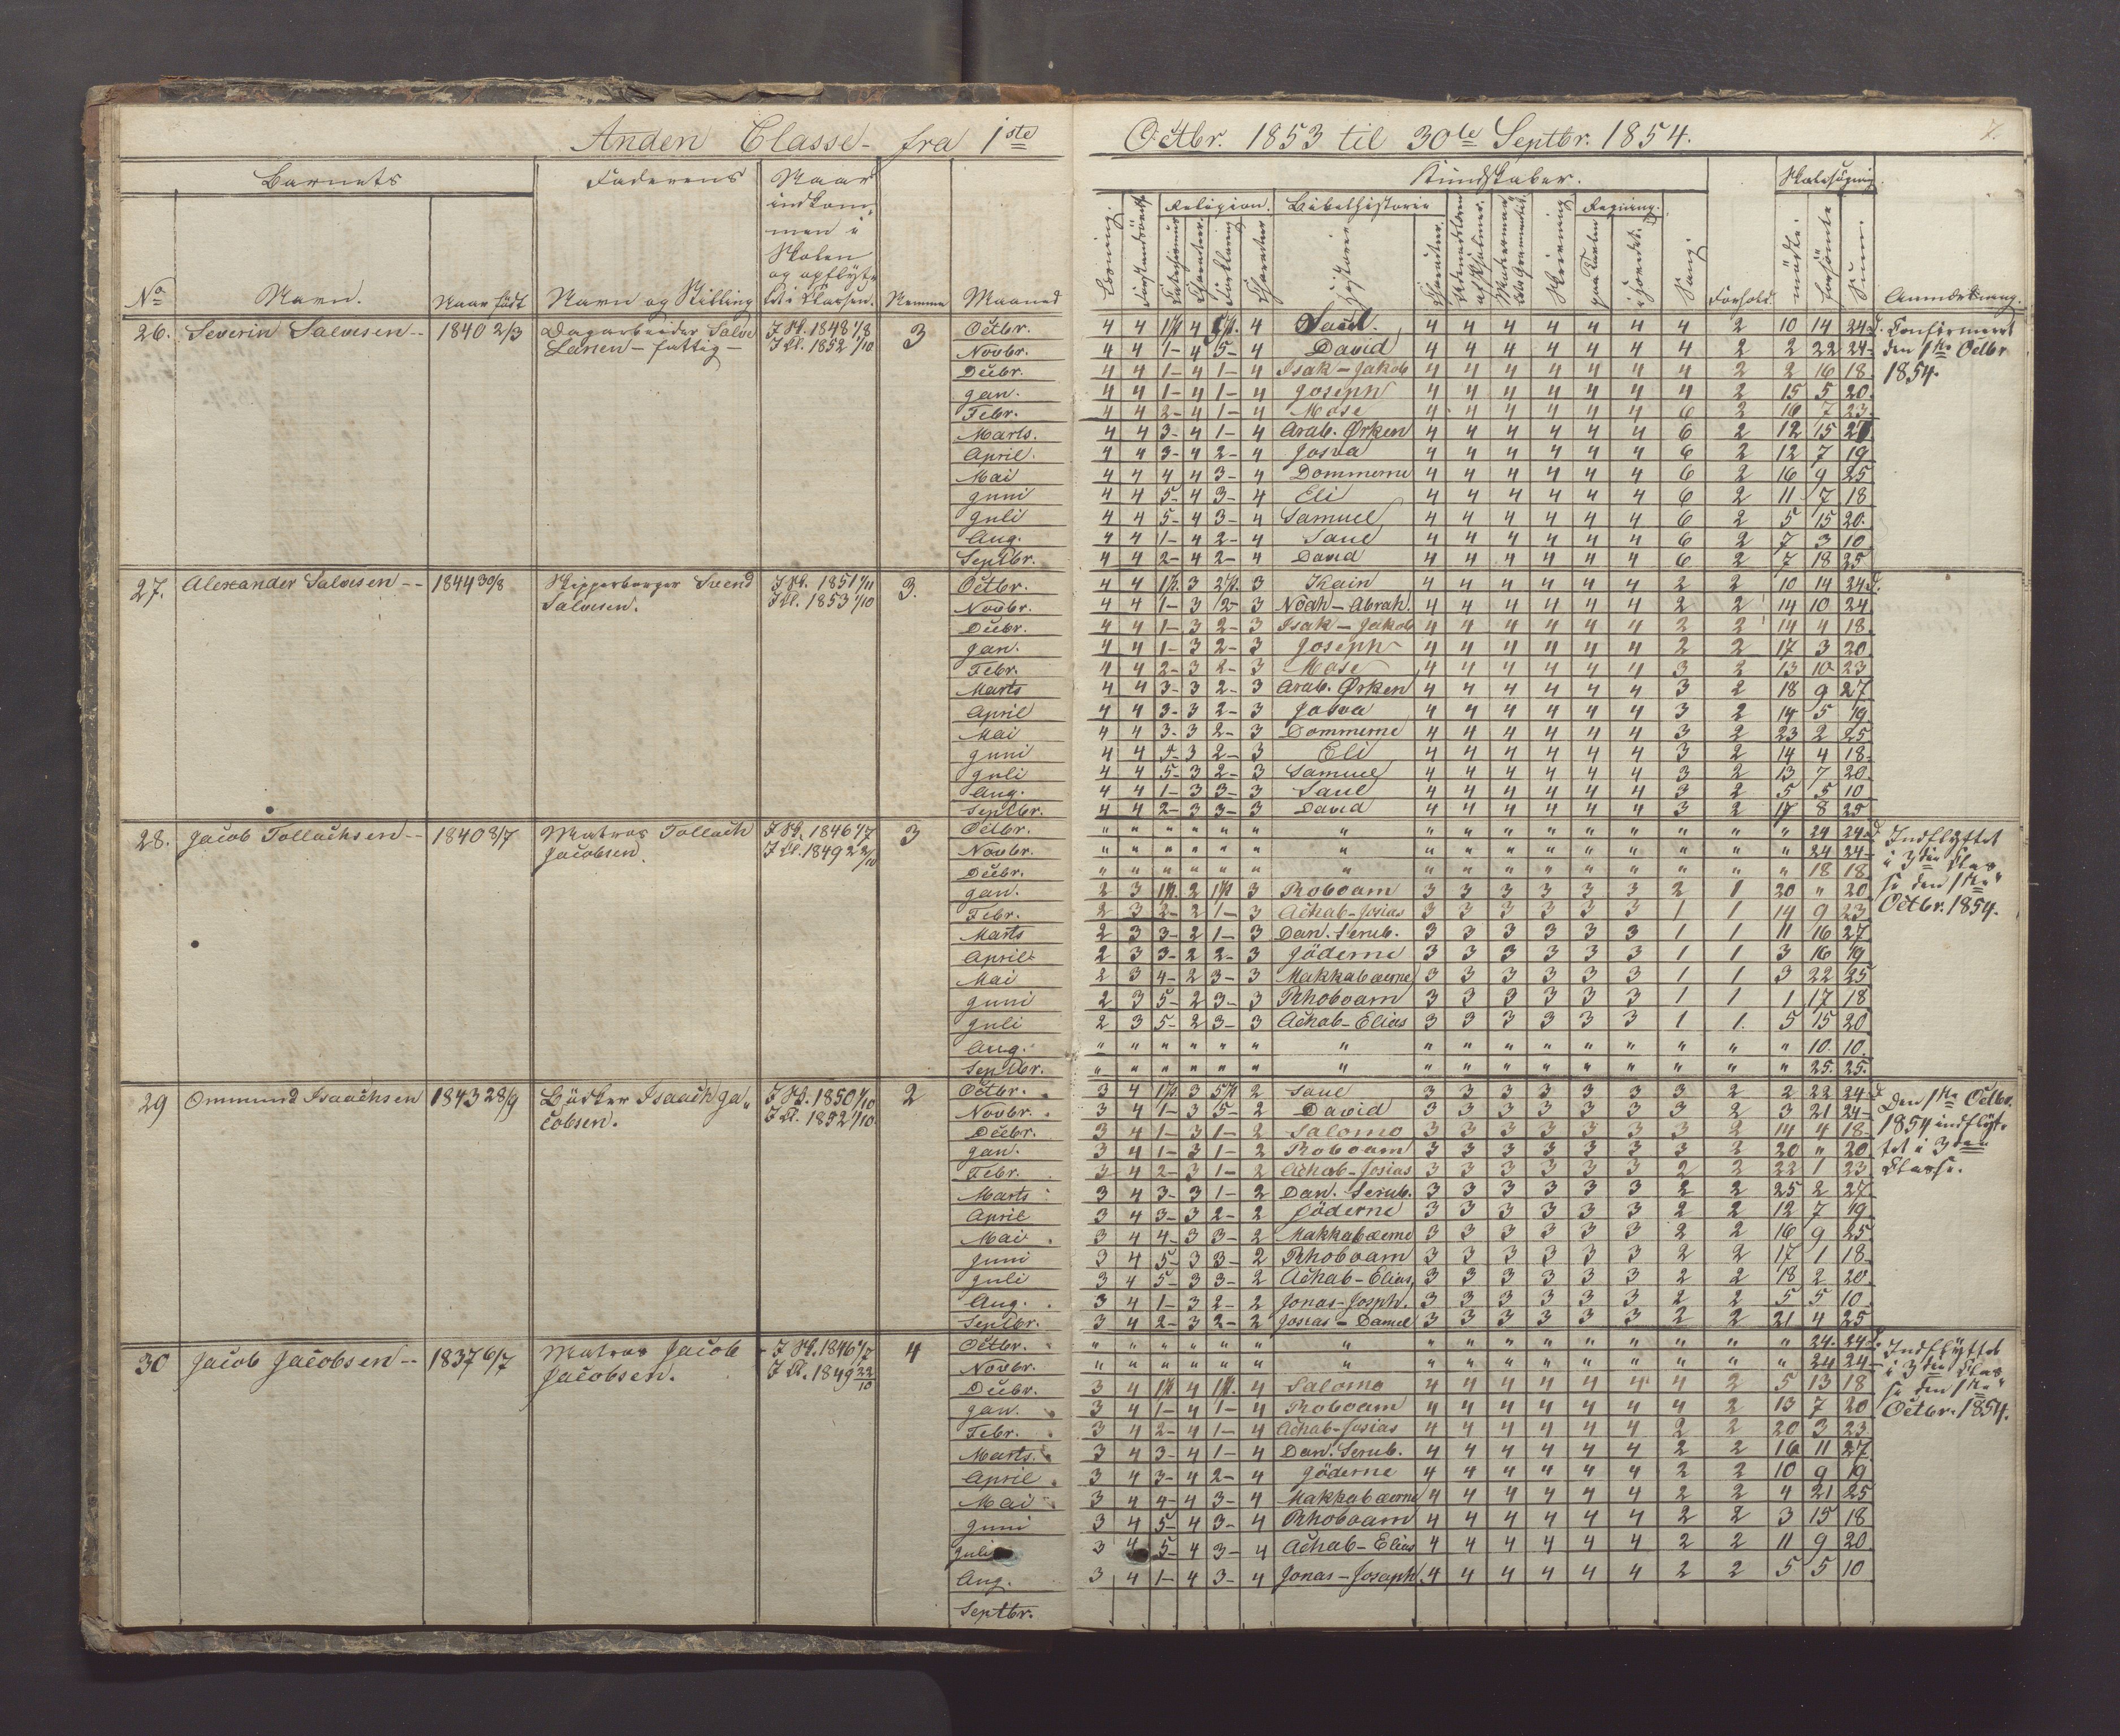 Anden Classe fra 1ste Octbr. 1853 til 30te Septbr. 1854. 7.
Barnets Faderens Naar indkom-
men i
Skolen
og opflyt-
No Navn. Naar født Navn og Stilling tet i Classen. Nemme Maaned
Kundskaber. Skolesøgning.
Religion. Bibelhistorie Regning.
Læsning. Charakter. Forklaring Charakter Historie Charakter. Skrivning paa Tavlen i Hovedet. Sang. Forhold. mødte. forsømte Sum. Anmærkning.
26. Severin Salvesen -- 1840 2/3 Dagarbeider Salve J Sk. 1848 1/8 3 Octbr. 4 4 1 4 4 Saul. 4 4 4 4 4 4 4 2 10 14 24 d. Confirmeret
Larsen - fattig - J Cl. 1852 1/10 Novbr. 4 4 1- 4 5- 4 David 4 4 4 4 4 4 4 2 2 22 24- den 1ste Octbr
Decbr. 4 4 1- 4 1- 4 Isak - Jakob 4 4 4 4 4 4 4 2 2 16 18. 1854.
Jan. 4 4 1- 4 1- 4 Joseph 4 4 4 4 4 4 4 2 15 5 20.
Febr. 4 4 2- 4 1- 4 Mose 4 4 4 4 4 4 6 2 16 7 23.
Marts. 4 4 3- 4 1- 4 Arab. Ørken 4 4 4 4 4 4 6 2 12 15 27
April. 4 4 3- 4 2- 4 Josva 4 4 4 4 4 4 6 2 12 7 19
Mai 4 4 4 4 3- 4 Dommerne 4 4 4 4 4 4 6 2 16 9 25
Juni 4 4 5- 4 3- 4 Eli 4 4 4 4 4 4 6 2 11 7 18
Juli 4 4 5- 4 3- 4 Samuel 4 4 4 4 4 4 6 2 5 15 20.
Aug. 4 4 1- 4 2- 4 Saul 4 4 4 4 4 4 6 2 7 3 10
Septbr. 4 4 2- 4 2- 4 David 4 4 4 4 4 4 6 2 7 18 25
27. Alexander Salvesen -- 1844 30/8 Skipperborger Svend J Sk. 1851 1/11 3. Octbr. 4 4 1p. 3 2p. 3 Kain 4 4 4 4 4 4 2 2 10 14 24 d.
Salvesen. J Cl. 1853 1/10 Novbr. 4 4 1- 3 2- 3 Noah - Abrah. 4 4 4 4 4 4 2 2 14 10 24
Decbr. 4 4 1- 3 2- 3 Isak - Jakob 4 4 4 4 4 4 2 2 14 4 18.
Jan. 4 4 1- 3 2- 3 Joseph 4 4 4 4 4 4 2 2 17 3 20.
Febr. 4 4 2- 3 2- 3 Mose 4 4 4 4 4 4 3 2 13 10 23
Marts 4 4 3- 3 2- 3 Arab. Ørken 4 4 4 4 4 4 3 2 18 9 27
April 4 4 3- 3 2- 3 Josva 4 4 4 4 4 4 3 2 14 5 19.
Mai 4 4 3- 3 2- 3 Dommerne 4 4 4 4 4 4 3 2 23 2 25
Juni 4 4 5- 3 2- 3 Eli 4 4 4 4 4 4 3 2 14 4 18-
Juli 4 4 5- 3 2- 3 Samuel 4 4 4 4 4 4 3 2 13 7 20.
Aug. 4 4 1- 3 3- 3 Saul 4 4 4 4 4 4 3 2 5 5 10
Septbr. 4 4 2- 3 3- 3 David 4 4 4 4 4 4 3 2 17 8 25
28. Jacob Tollachsen -- 1840 8/7 Matros Tollach J Sk. 1846 1/7 3 Octbr. " " " " " " " " " " " " " " " " 24 24 d Indflyttet
Jacobsen. J Cl. 1849 22/10 Novbr. " " " " " " " " " " " " " " " " 24 24- i 3die Clas
Decbr. " " " " " " " " " " " " " " " " 18 18. se den 1ste
Jan. 2 3 1p. 2 1p 3 Roboam 3 3 3 3 3 3 2 1 20 " 20 Octbr. 1854.
Febr. 2 3 2- 2 1- 3 Achab-Josias 3 3 3 3 3 3 1 1 14 9 23
Marts 2 3 3- 2 1- 3 Dan. Serub. 3 3 3 3 3 3 1 1 11 16 27
April 2 3 3- 2 2- 3 Jöderne 3 3 3 3 3 3 1 1 3 16 19
Mai 2 3 4- 2 3- 3 Makkabæerne 3 3 3 3 3 3 1 1 3 22 25
Juni 2 3 5- 2 3- 3 Rhoboam 3 3 3 3 3 3 1 1 1 17 18
Juli 2 3 5- 2 3- 3 Achab-Elias 3 3 3 3 3 3 1 1. 5 15 20
Aug. " " " " " " " " " " " " " " " " 10. 10.
Septbr. " " " " " " " " " " " " " " " " 25. 25.
29 Ommund Isaachsen 1843 28/9 Bødker Isaach Ja- J Sk. 1850 1/10 2 Octbr. 3 4 1p. 3 5p 2 Saul 3 3 3 3 3 3 3 2 2 22 24 d Den 1ste Octbr.
cobsen. J Cl. 1852 1/10. Novbr. 3 4 1- 3 5- 2 David 3 3 3 3 3 3 3 2 3 21 24- 1854 indflyt-
Decbr. 3 4 1- 3 1- 2 Salomo 3 3 3 3 3 3 3 2 14 4 18- tet i 3die
Jan. 3 4 1- 3 1- 2 Roboam 3 3 3 3 3 3 3 2 20 " 20 Classe.
Febr. 3 4 2- 3 1- 2 Achab-Josias 3 3 3 3 3 3 2 2 22 1 23
Marts 3 4 3- 3 1- 2 Dan. Serub. 3 3 3 3 3 3 2 2 25 2 27
April 3 4 3- 3 2- 2 Jöderne 3 3 3 3 3 3 2 2 12 7 19.
Mai 3 4 4- 3 3- 2 Makkabæerne 3 3 3 3 3 3 2 2 16 9 25
Juni 3 4 5- 3 3- 2 Rhoboam 3 3 3 3 3 3 2 2 17 1 18
Juli 3 4 5- 3 3- 2 Achab-Elias, 3 3 3 3 3 3 2 2 18 2 20
Aug. 3 4 1- 3 2- 2 Jonas-Josph. 3 3 3 3 3 3 2 2 5 5 10
Septbr. 3 4 2- 3 2- 2 Josias - Daniel 3 3 3 3 3 3 2 2 21 4 25
30 Jacob Jacobsen -- 1837 6/7 Matros Jacob J Sk. 1846 1/7 4 Octbr. " " " " " " " " " " " " " " " " 24. 24 d. Indflyttet
Jacobsen. J Cl. 1849 22/10 Novbr. " " " " " " " " " " " " " " " " 24 24- i 3die Clas
Decbr. 3 4 1p 4 1p. 4 Salomo 4 4 4 4 4 4 4 2 5 13 18 se den 1ste
Jan. 3 4 1- 4 1- 4 Roboam 4 4 4 4 4 4 4 2 13 7 20 Octbr. 1854.
Febr. 3 4 2- 4 1- 4 Achab-Josias 4 4 4 4 4 4 2 2 20 3 23
Marts. 3 4 3- 4 1- 4 Dan. Serub. 4 4 4 4 4 4 2 2 16 11 27
April 3 4 3- 4 2- 4 Jöderne 4 4 4 4 4 4 2 2 10 9 19
Mai 3 4 4- 4 3- 4 Makkabæerne 4 4 4 4 4 4 2 2 4 21 25
Juni 3 4 5- 4 3- 4 Rhoboam 4 4 4 4 4 4 2 2 3 15 18
Juli 3 4 5- 4 3- 4 Achab-Elias 4 4 4 4 4 4 2 2 11 9 20
Aug. 3 4 1- 4 3- 4 Jonas-Joseph. 4 4 4 4 4 4 2 2 5 5 10
Septbr.